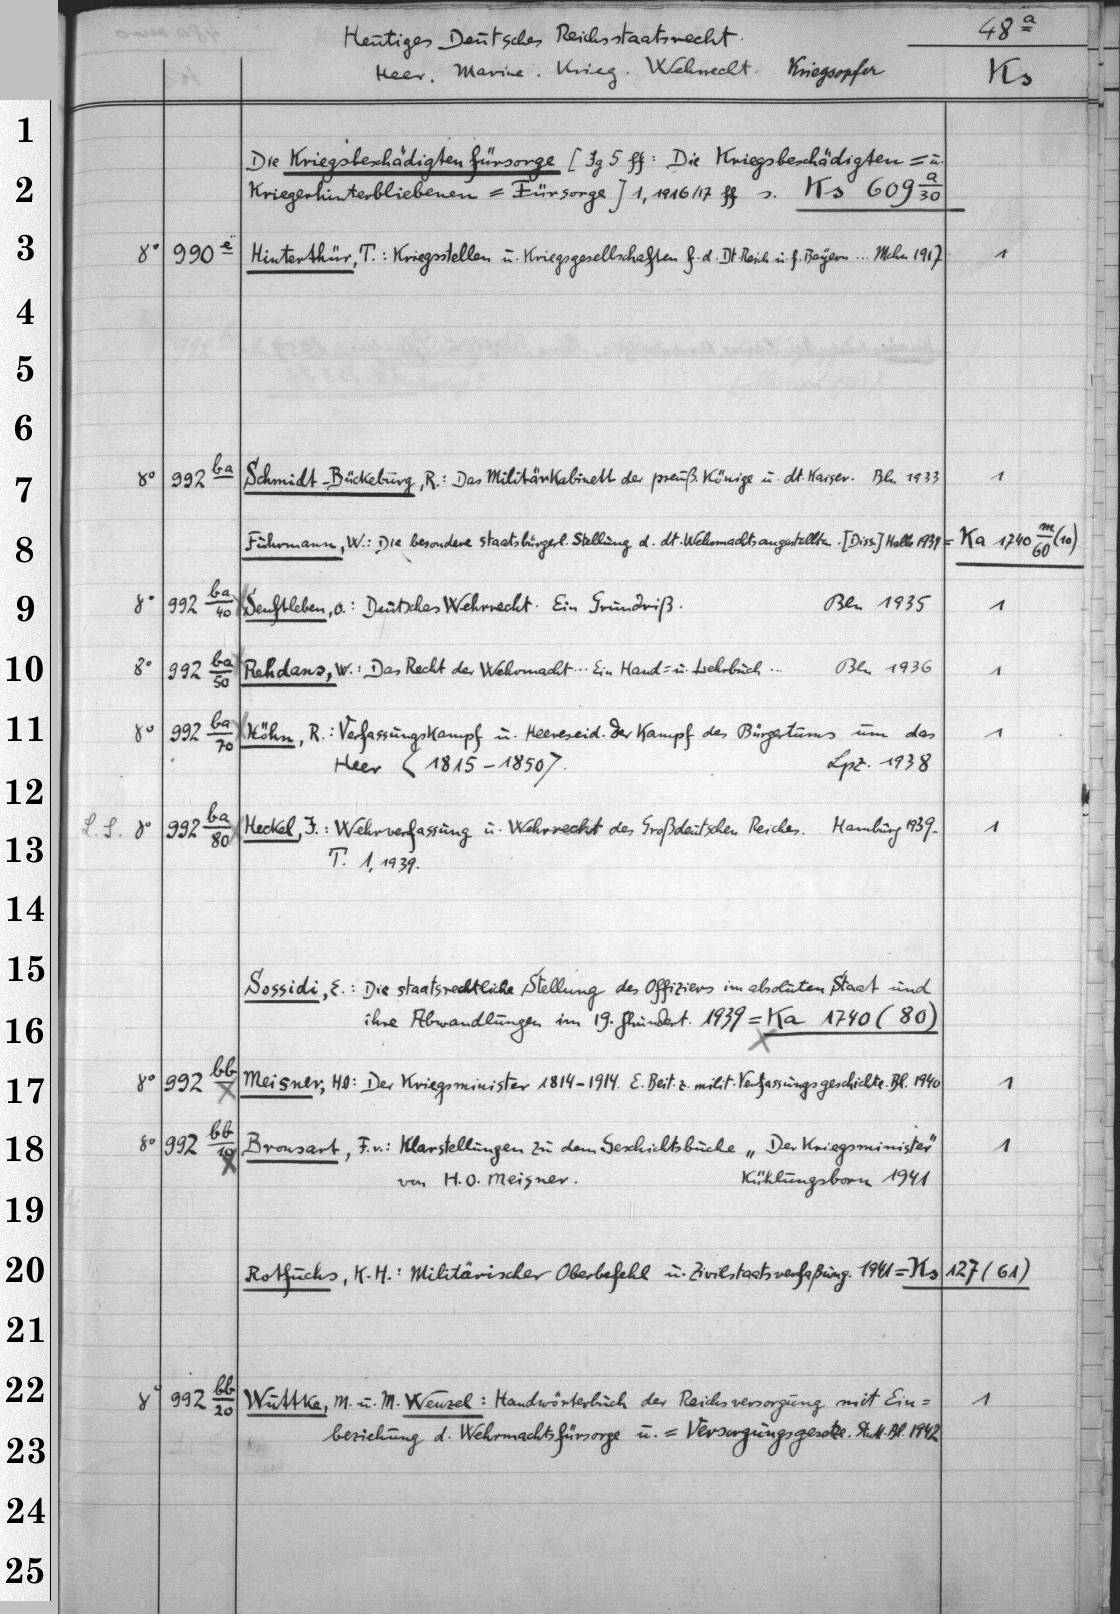 Heutiges Deutsches Reichsstaatsrecht. 48 a
Heer. Marine. Krieg. Wehrrecht. Kriegsopfer Ks
1
Die Kriegsbeschädigtenfürsorge [Jg 5 ff: Die Kriegsbeschädigten= u.
2 Kriegerhinterbliebenen = Fürsorge] 1, 1916/17 ff s. Ks 609 a/30
3 8° 990 e Hinterthür, T.: Kriegsstellen u. Kriegsgesellschaften f. d. Dt. Reich u. f. Bayern ... Mchn 1917 1
4
5
6
7 8° 992 ba Schmidt-Bückeburg, R.: Das Militärkabinett der preuß. Könige u. dt. Kaiser. Bln. 1933 1
8 Fuhrmann, W.: Die besondere staatsbürgerl. Stellung d. dt. Wehrmachtsangestellten. [Diss.] Halle 1939 = Ka 1740 m/60 (10)
9 8° 992 ba/40 Senftleben, O.: Deutsches Wehrrecht. Ein Grundriß. Bln 1935 1
10 8° 992 ba/50 Rehdans, W.: Das Recht der Wehrmacht ... Ein Hand= u. Lehrbuch ... Bln 1936 1
11 8° 992 ba/70 Höhn, R.: Verfassungskampf u. Heereseid. Der Kampf des Bürgertums um das 1
Heer <1815-1850>. Lpz. 1938
12
L.S. 8° 992 ba/80 Heckel, J.: Wehrverfassung u. Wehrrecht des Großdeutschen Reiches. Hamburg 1939. 1
13 T. 1, 1939.
14
15 Sossidi, E.: Die staatsrechtliche Stellung des Offiziers im absoluten Staat und
16 ihre Abwandlungen im 19. Jhundert. 1939 = Ka 1740 (80)
17 8° 992 bb Meisner, HO: Der Kriegsminister 1814-1914. E. Beit. z. milit. Verfassungsgeschichte. Bl. 1940 1
18 8° 992 bb/10 Bronsart, F.v.: Klarstellungen zu dem Geschichtsbuche „Der Kriegsminister" 1
von H.O. Meisner. Kühlungsborn 1941
19
20 Rotfuchs, K.H.: Militärischer Oberbefehl u. Zivilstaatsverfaßung. 1941 = Ks 127 (61)
21
22 8° 992 bb/20 Wuttke, M. u. M. Wenzel: Handwörterbuch der Reichsversorgung mit Ein= 1
23 beziehung d. Wehrmachtsfürsorge u. = Versorgungsgesetze. Stutt. Bl. 1942
24
25